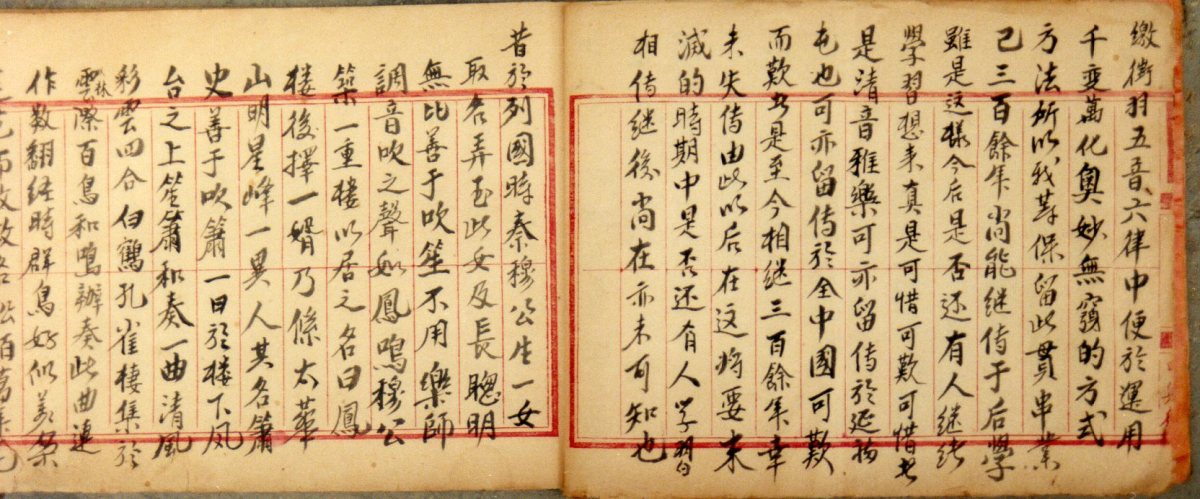 徵羽五音六律中便於運用
千变萬化奥妙無窮的方式
方法所以我等保留此貫串業
已三百餘年尚能继传于后學
雖是这樣今后是否还有人继续
學習想来真是可惜可歎可惜也
是清音雅樂可亦留传於延
屯也可亦留传於全中國可歎
而歎也是至今相继三百餘年幸
未失传由此以后在这将要未
滅的時期中是否还有人学習
相传继後尚在亦未可知也
昔於列國時秦穆公生一女
取名弄玉此女及長聰明
無比善于吹笙不用樂師
調音吹之聲如鳳鳴穆公
築一重楼以居之名曰鳳
楼後擇一婿乃係太華
山明星峰一異人其名簫
史善于吹簫一曰於楼下凤
台之上笙簫和奏一曲清風
彩雲四合白鶴孔雀棲集於
雲林際百鳥和鳴辦奏此曲連
作数翻经時群鳥好似